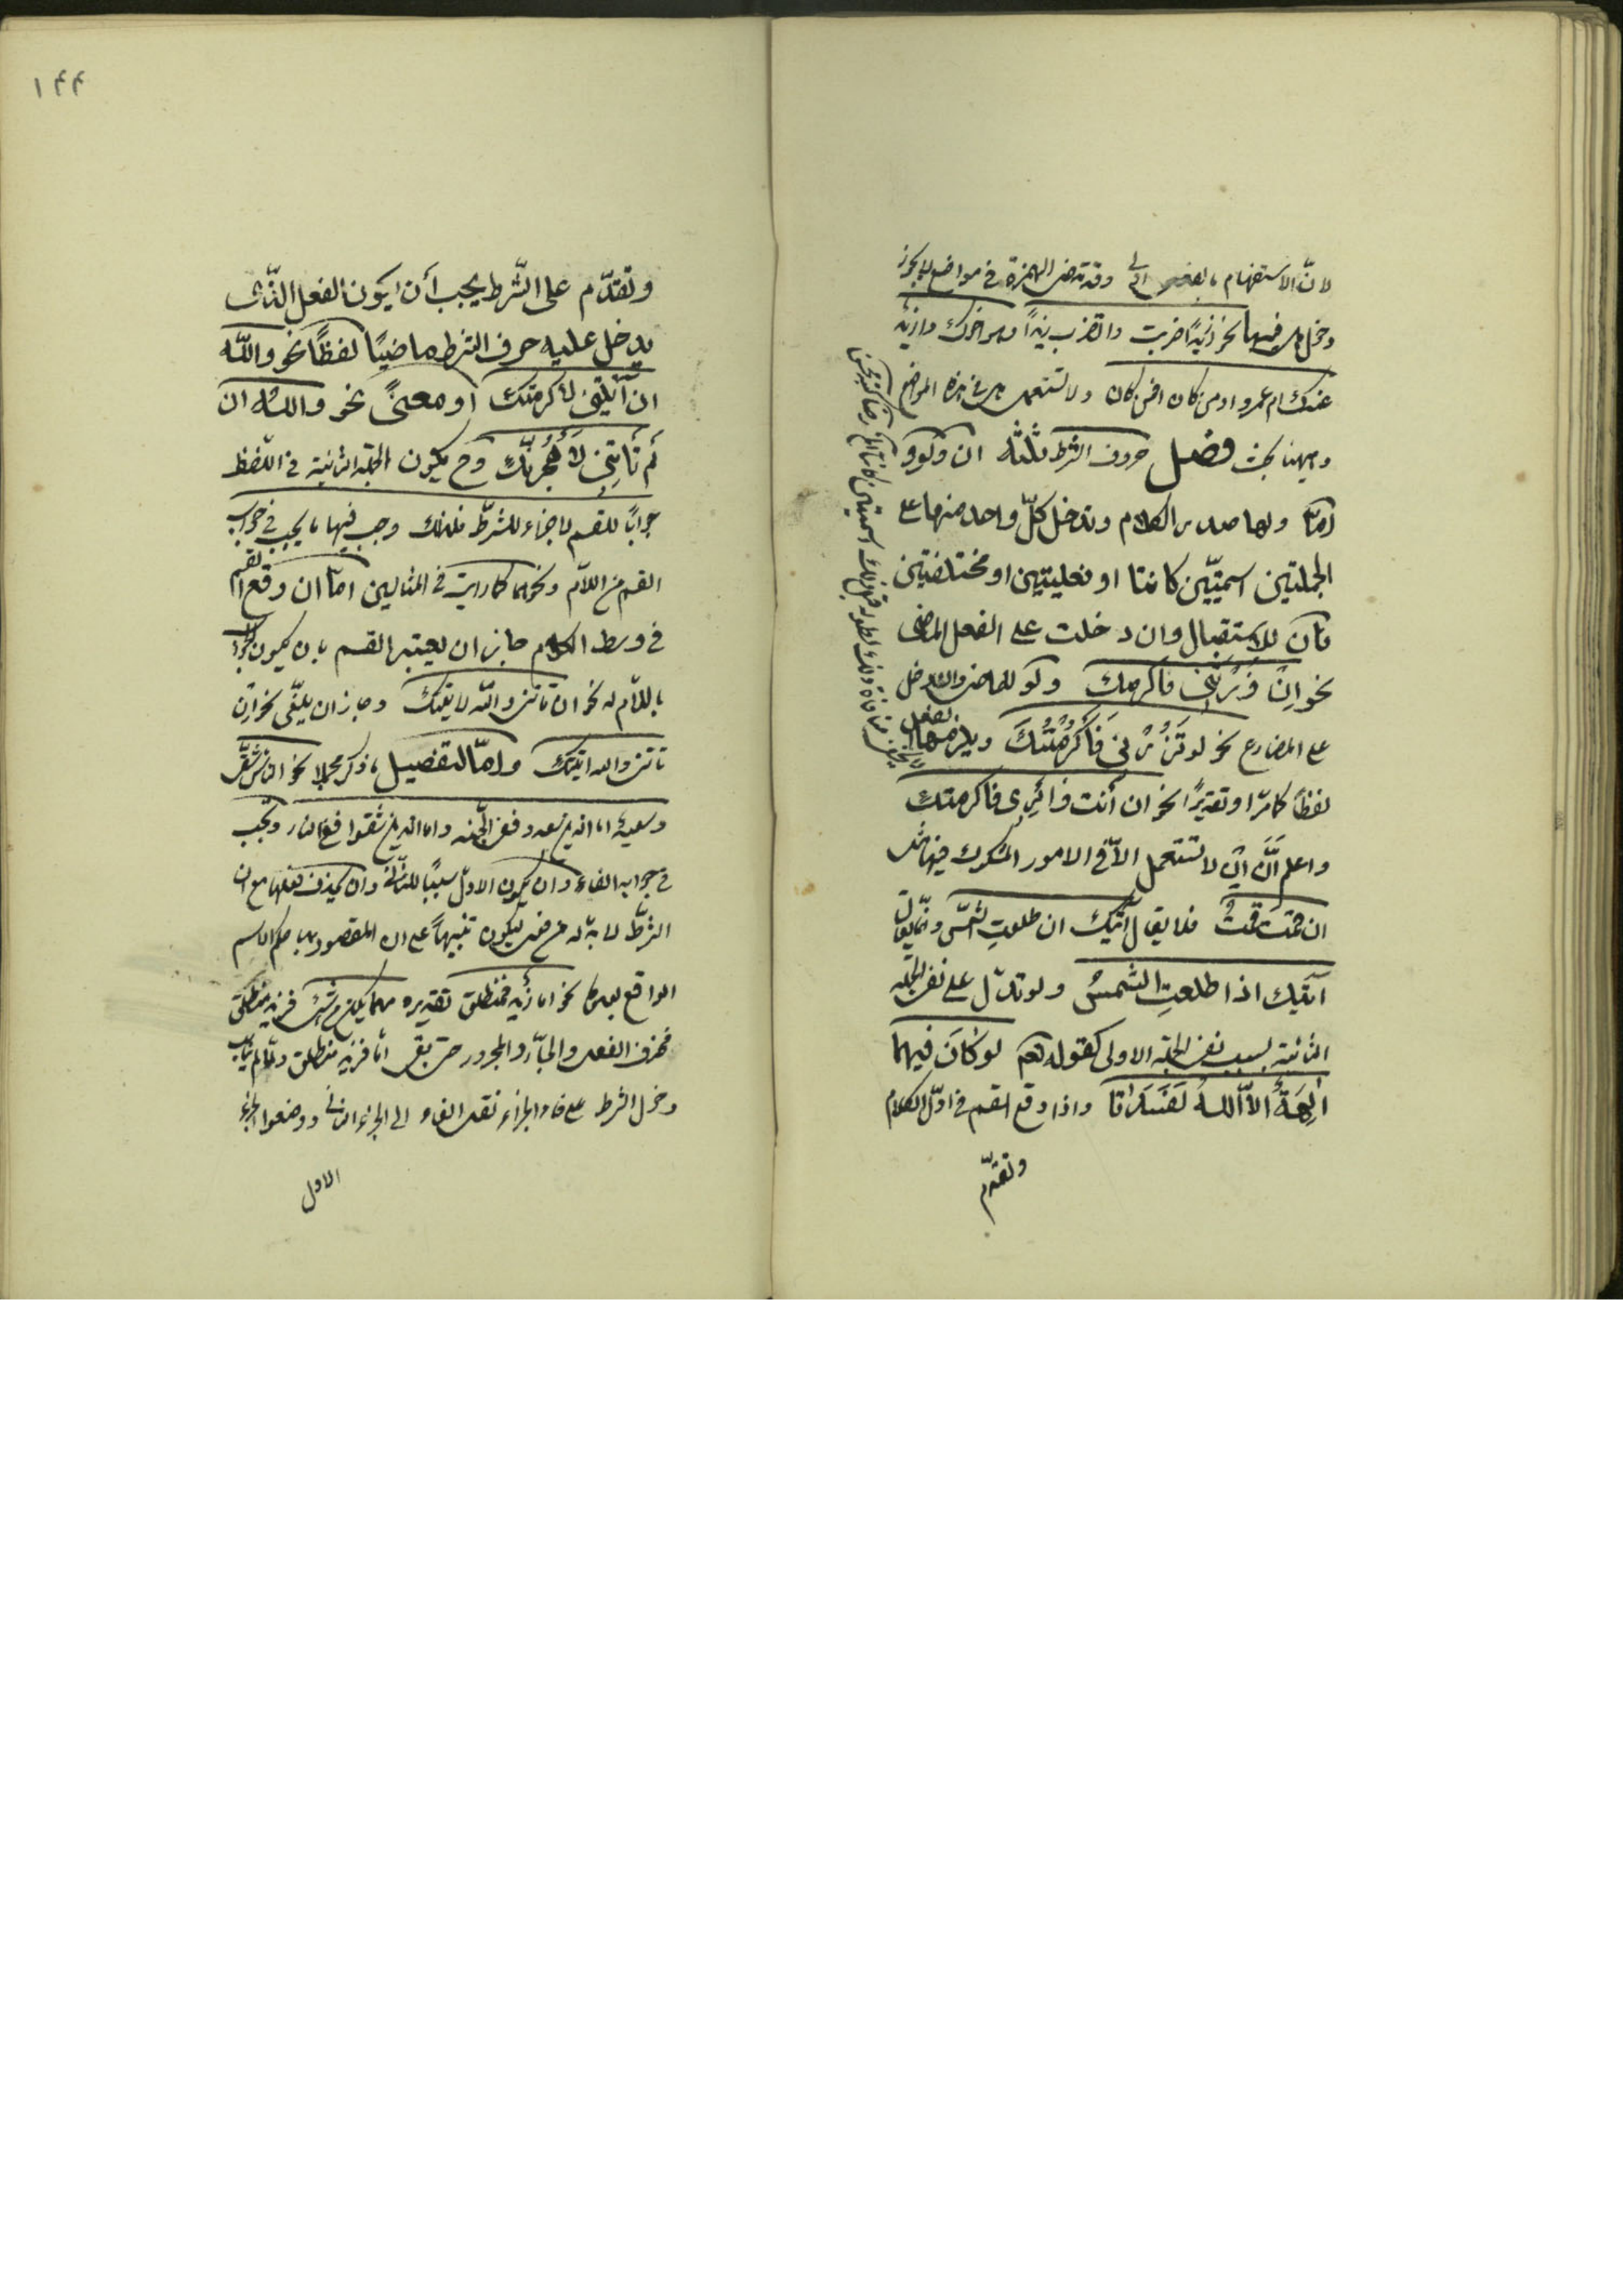 لانّ الاستفهام بالفعل اولى وقد تدخل الهمزة فى مواضع لا يجوز
دخول هل فيها نحو أزيدًا ضربت واتضرب زيدًا وهو اخوك وازيد
عندك ام عمرو واومن كان افمن كان ولا تستعمل هل فى هذه المواضع
وههنا بحث فصل حروف الشرط ثلثه ان ولو و
امّا ولها صدر الكلام وتدخل كلّ واحد منها على
الجملتين اسميّتين كانتا او فعليتين او مختلفتين
فان للاستقبال وان دخلت على الفعل الماضى
نحو ان زرتنى فاكرمك ولو للماضى وان دخل
على المضارع نحو لو تزورنى فأكرمتك ويلزمهما الفعل
لفظًا كما مرّ او تقديرًا نحو ان أنت زائرى فاكرمتك
واعلم انّ ان لا تستعمل الاّ فى الامور المشكوك فيها مثل
ان قمت قمت فلا يقال آتيك ان طلعت الشمس وانّما يقال
آتيك اذا طلعت الشمس ولو تدلّ على نفى الجملة
الثانية بسبب نفى الجملة الاولى كقوله تعالى لو كان فيهما
آلهة الاّ الله لفسدتا واذا وقع القسم فى اوّل الكلام
وتقدّم
١٤٤
وتقدّم على الشّرط يجب أن يكون الفعل الذّى
يدخل عليه حرف الشرط ماضيًا لفظًا نحو والله
ان آتيتنى لأكرمتك او معنىً نحو والله ان
لم تأتنى لأهجرنّك وح يكون الجملة الثانية فى اللفظ
جوابًا للقسم لا جزاء للشرط فلذلك وجب فيها ما يجب فى جواب
القسم من اللام ونحوها كما رايت فى المثالين امّا ان وقع القسم
فى وسط الكلام جاز ان يعتبر القسم بان يكون الجواب
باللّام له نحو ان تاتنى والله لاتيتك وجاز ان يلغى نحو ان
تاتنى والله اتيتك وامّا لتفصيل ما ذكر مجملا نحو الناس شقىّ
وسعيد اما الذين سعدوا ففى الجنّه واما الذين شقوا ففى النار وتجب
فى جوابه الفاء وان يكون الاوّل سببًا للثّانى وان يحذف فعلها مع ان
الشرط لا بدّ له من فعل ليكون تنبيهًا على ان المقصود بها حكم الاسم
الواقع بعدها نحو اما زيد فمنطلق تقديره مهما يكن من شئ فزيد منطلق
فحذف الفعل والجارّ والمجرور حتى بقى امّا فزيد منطلق ولمّا لم يناسب
دخول الشرط على فاء الجزاء نقل الفاء الى الجزء الثانى ووضعوا الجزء
الاول